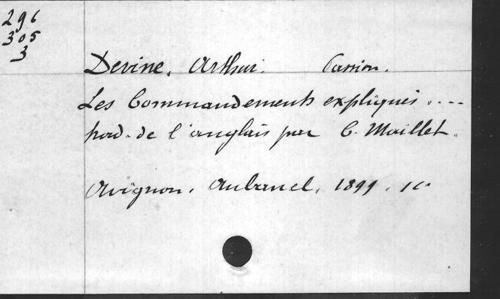 296
305
3
Devine, Arthur. Passion.
Les Commandements expliqués ....
trad. de l'anglais par C. Maillet.
Avignon, Aubanel, 1899.